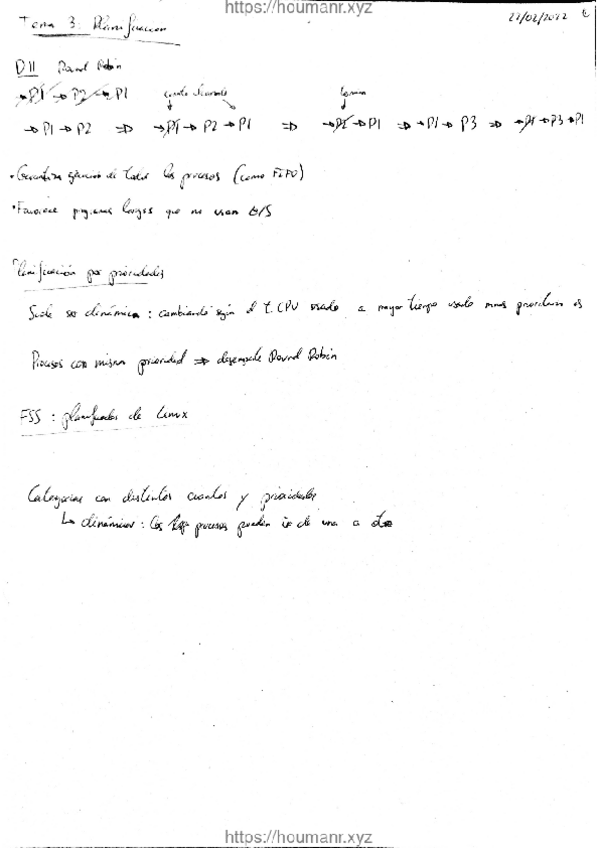 https://houmanr.xyz
22/02/2022
Tema 3: Planificación
D11 Round Robin
→P1→P2→P1
→P1→P2 ⇒ →P1→P2→P1 ⇒ →P2→P1 ⇒ →P1→P3 ⇒ →P1→P3→P1
• Garantiza ejecución de todos los procesos (como FIFO)
• Favorece programas largos que no usan E/S
Planificación por prioridades
Suele ser dinámica: cambiando según el t. CPU usado a mayor tiempo usado menos
Procesos con misma prioridad ⇒ desempate Round Robin
FSS: planificador de Linux
Categorías con distintos cuantos y prioridades
↳ dinámicas: los procesos pueden ir de una a otra
https://houmanr.xyz